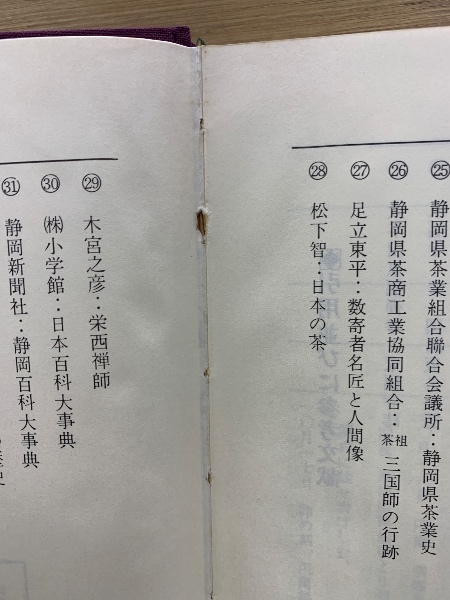 ㉕ 静岡県茶業組合聯合会議所：静岡県茶業史
㉖ 静岡県茶商工業協同組合：茶祖 三国師の行跡
㉗ 足立東平：数寄者名匠と人間像
㉘ 松下智：日本の茶
㉙ 木宮之彦：栄西禅師
㉚ ㈱小学館：日本百科大事典
㉛ 静岡新聞社：静岡百科大事典